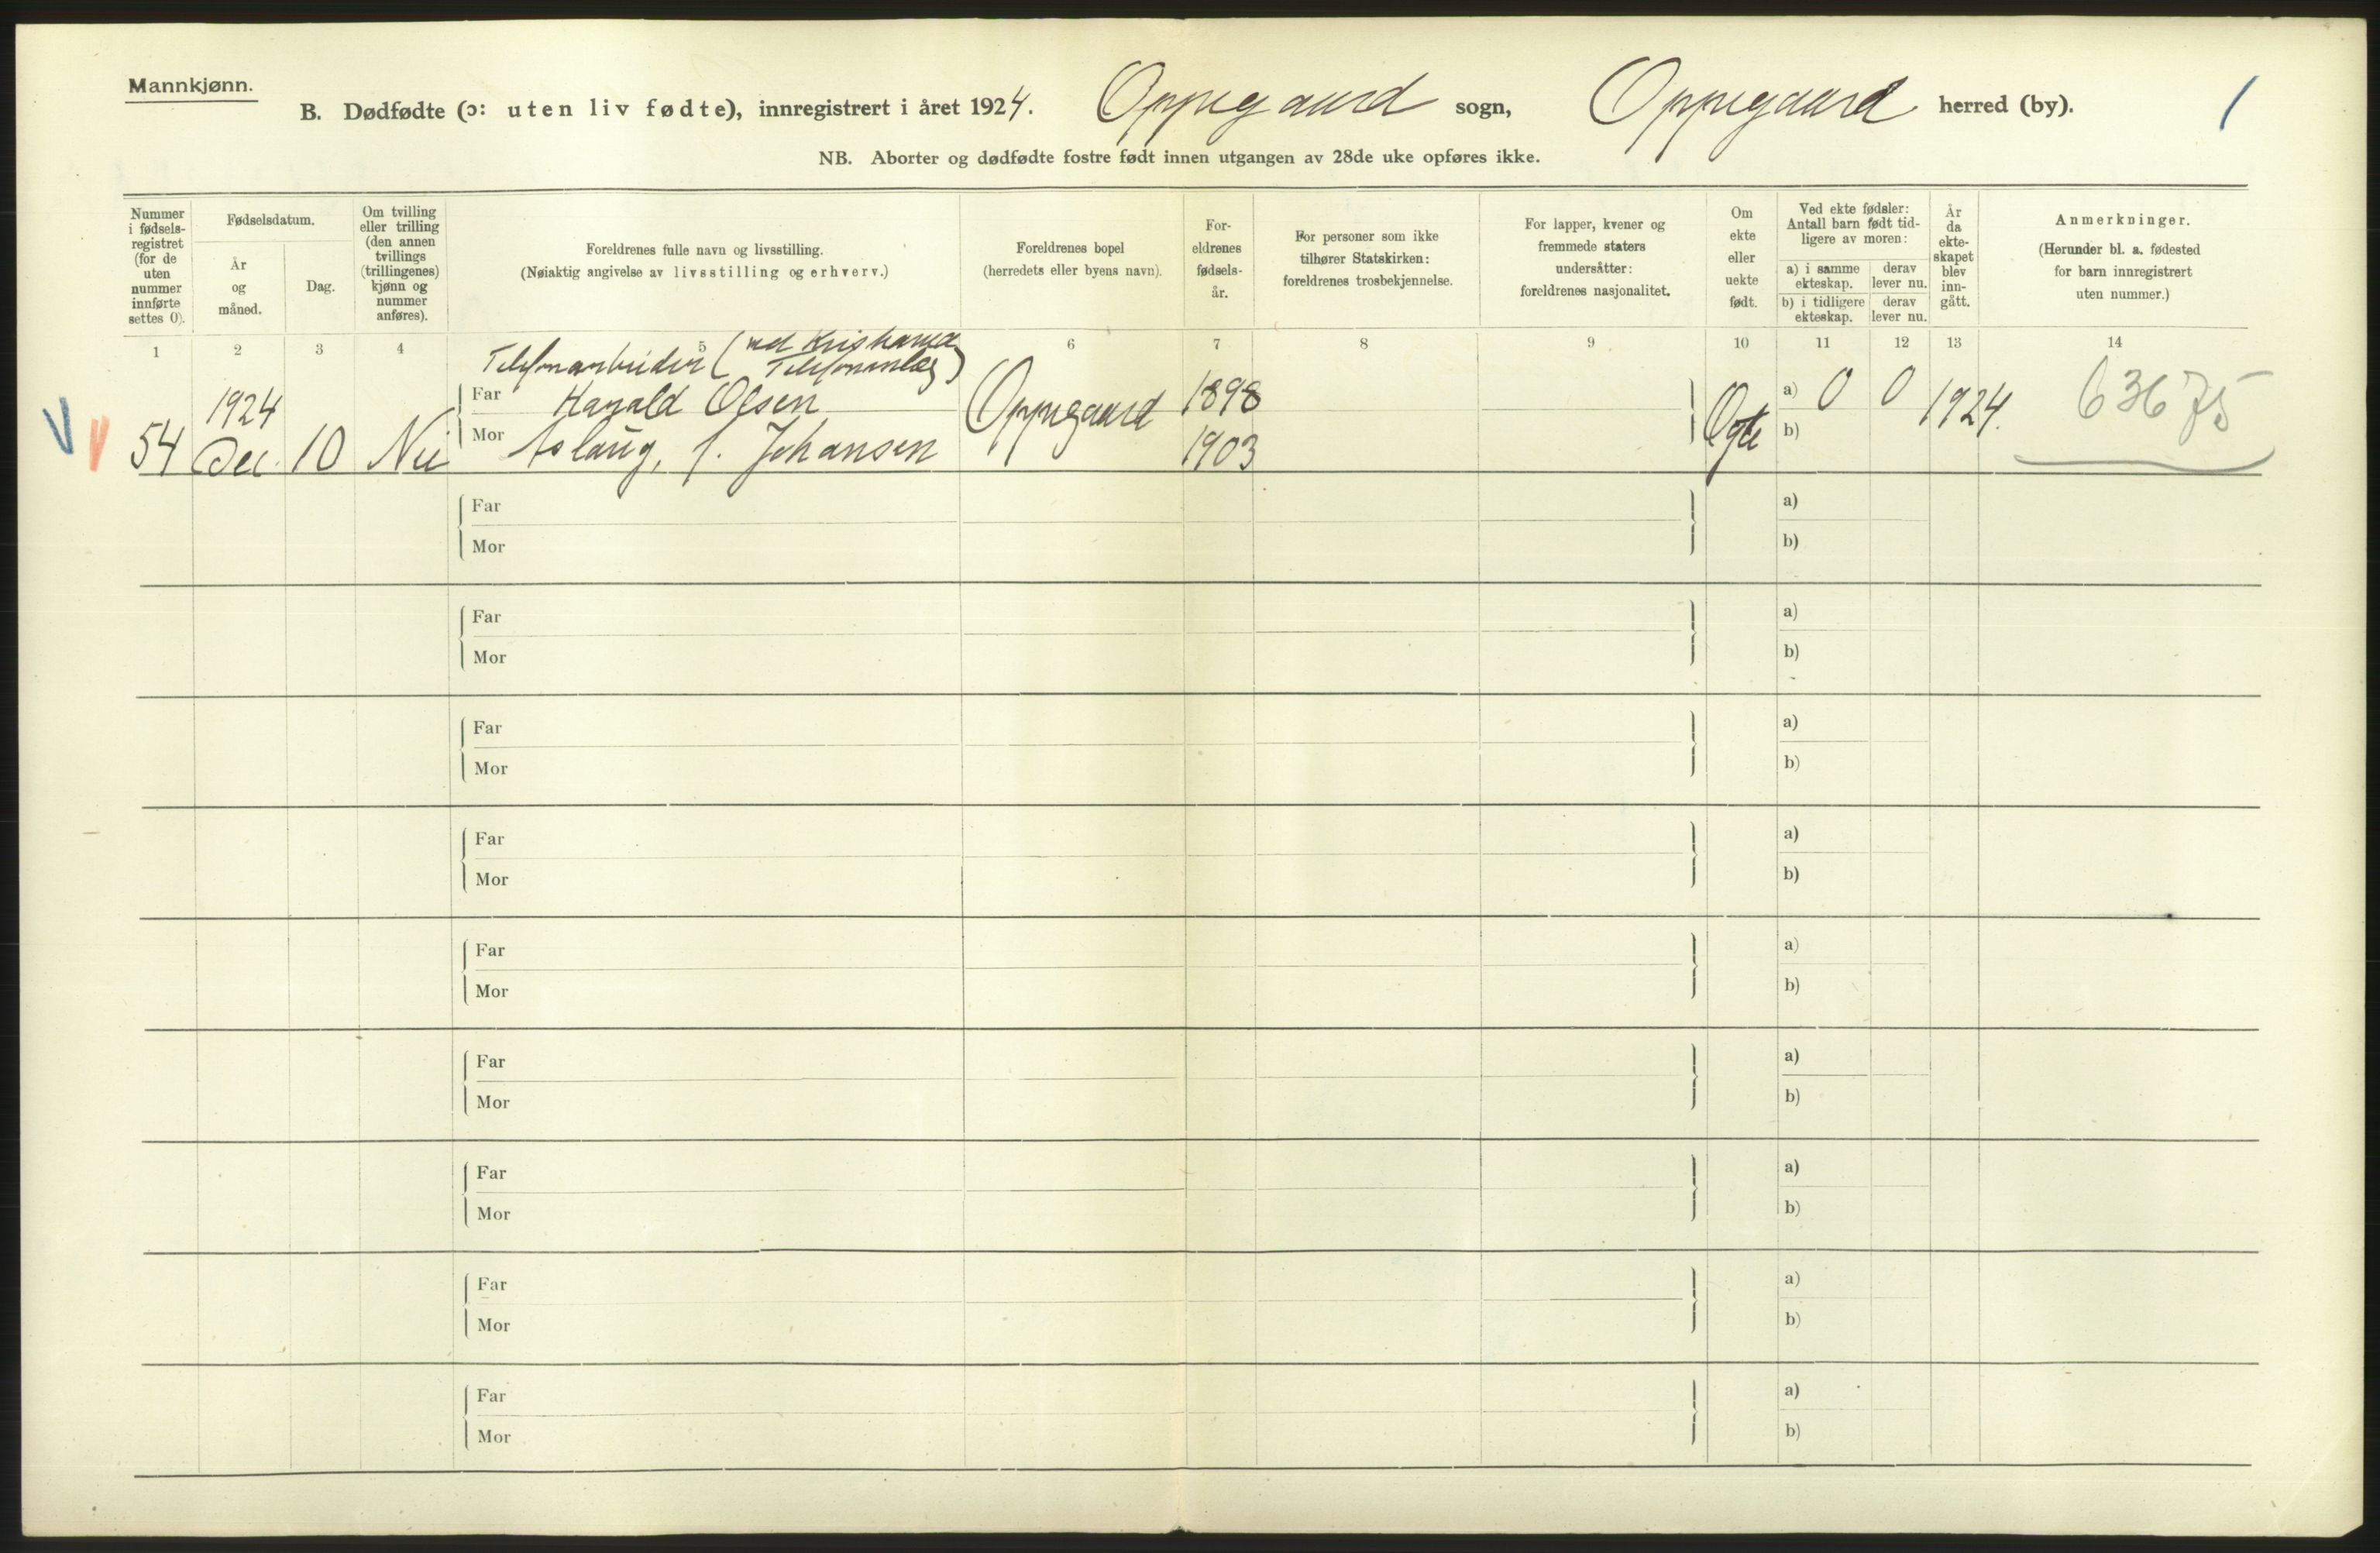 Mannkjønn.
B. Dødfødte (ɔ: uten liv fødte), innregistrert i året 1924. Oppegaard sogn, Oppegaard herred (by). 1
NB. Aborter og dødfødte fostre født innen utgangen av 28de uke opføres ikke.
Nummer i fødsels-registret (for de uten nummer innførte settes 0).
Fødselsdatum.
År og måned.
Dag.
Om tvilling eller trilling (den annen tvillings (trillingenes) kjønn og nummer anføres).
Foreldrenes fulle navn og livsstilling.
(Nøiaktig angivelse av livsstilling og erhverv.)
Foreldrenes bopel
(herredets eller byens navn).
For-eldrenes fødsels-år.
For personer som ikke tilhører Statskirken: foreldrenes trosbekjennelse.
For lapper, kvener og fremmede staters undersåtter: foreldrenes nasjonalitet.
Om ekte eller uekte født.
Ved ekte fødsler: Antall barn født tid-ligere av moren:
a) i samme ekteskap.
derav lever nu.
b) i tidligere ekteskap.
derav lever nu.
År da ekte-skapet blev inn-gått.
Anmerkninger.
(Herunder bl. a. fødested for barn innregistrert uten nummer.)
1 2 3 4 5 6 7 8 9 10 11 12 13 14
Telefonarbeider (ved Kristiania
Telefonanlæg)
Far Harald Olsen Oppegaard 1898 a) 0 0 1924. 63675
54 1924 Dec. 10 Nei Mor Aslaug, f. Johansen 1903 Egte b)
Far a)
Mor b)
Far a)
Mor b)
Far a)
Mor b)
Far a)
Mor b)
Far a)
Mor b)
Far a)
Mor b)
Far a)
Mor b)
Far a)
Mor b)
Far a)
Mor b)